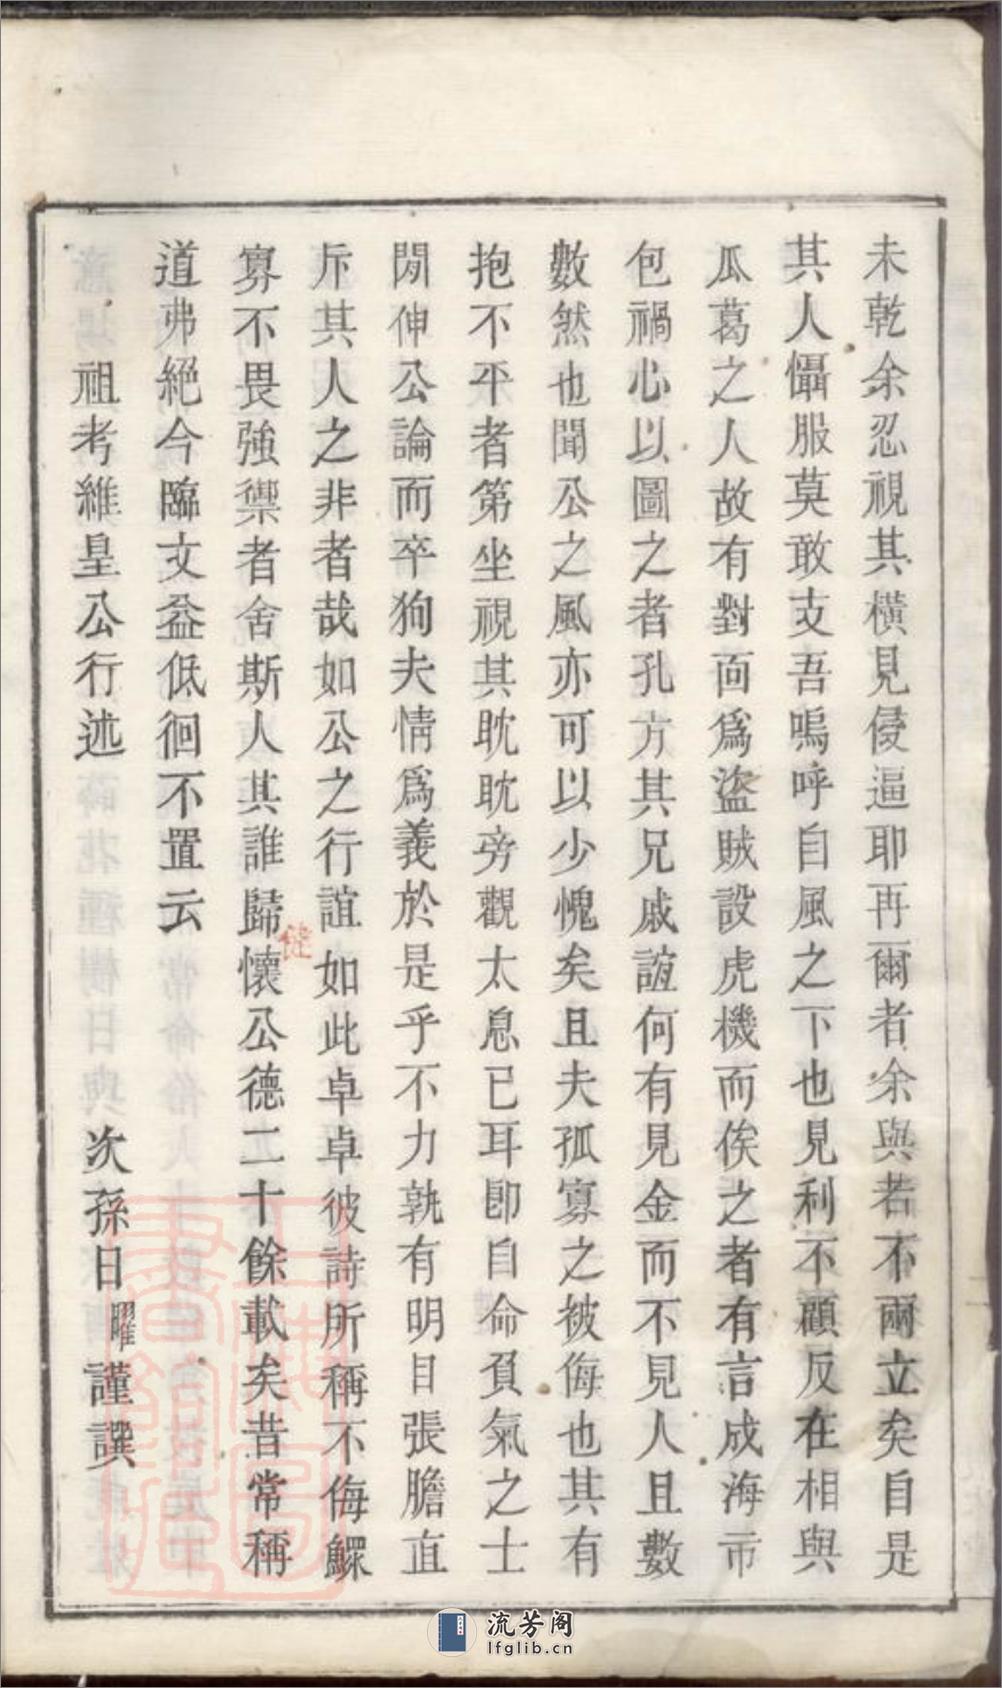 未乾余忍視其橫見侵逼耶再爾者余與若不兩立矣自是
其人懾服莫敢支吾嗚呼自風之下也見利不顧反在相與
瓜葛之人故有對面爲盜賊設虎機而俟之者有言成海市
包禍心以圖之者孔方其兄戚誼何有見金而不見人且數
數然也聞公之風亦可以少愧矣且夫孤寡之被侮也其有
抱不平者第坐視其眈眈旁觀太息已耳卽自命負氣之士
閒伸公論而卒狗夫情爲義於是乎不力孰有明目張膽直
斥其人之非者哉如公之行誼如此卓卓彼詩所稱不侮鰥
寡不畏強禦者舍斯人其誰歸懷公德二十餘載矣昔常稱
道弗絕今臨文益低徊不置云
祖考維皇公行述 次孫日曜謹譔
健
流芳阁
lfglib.cn